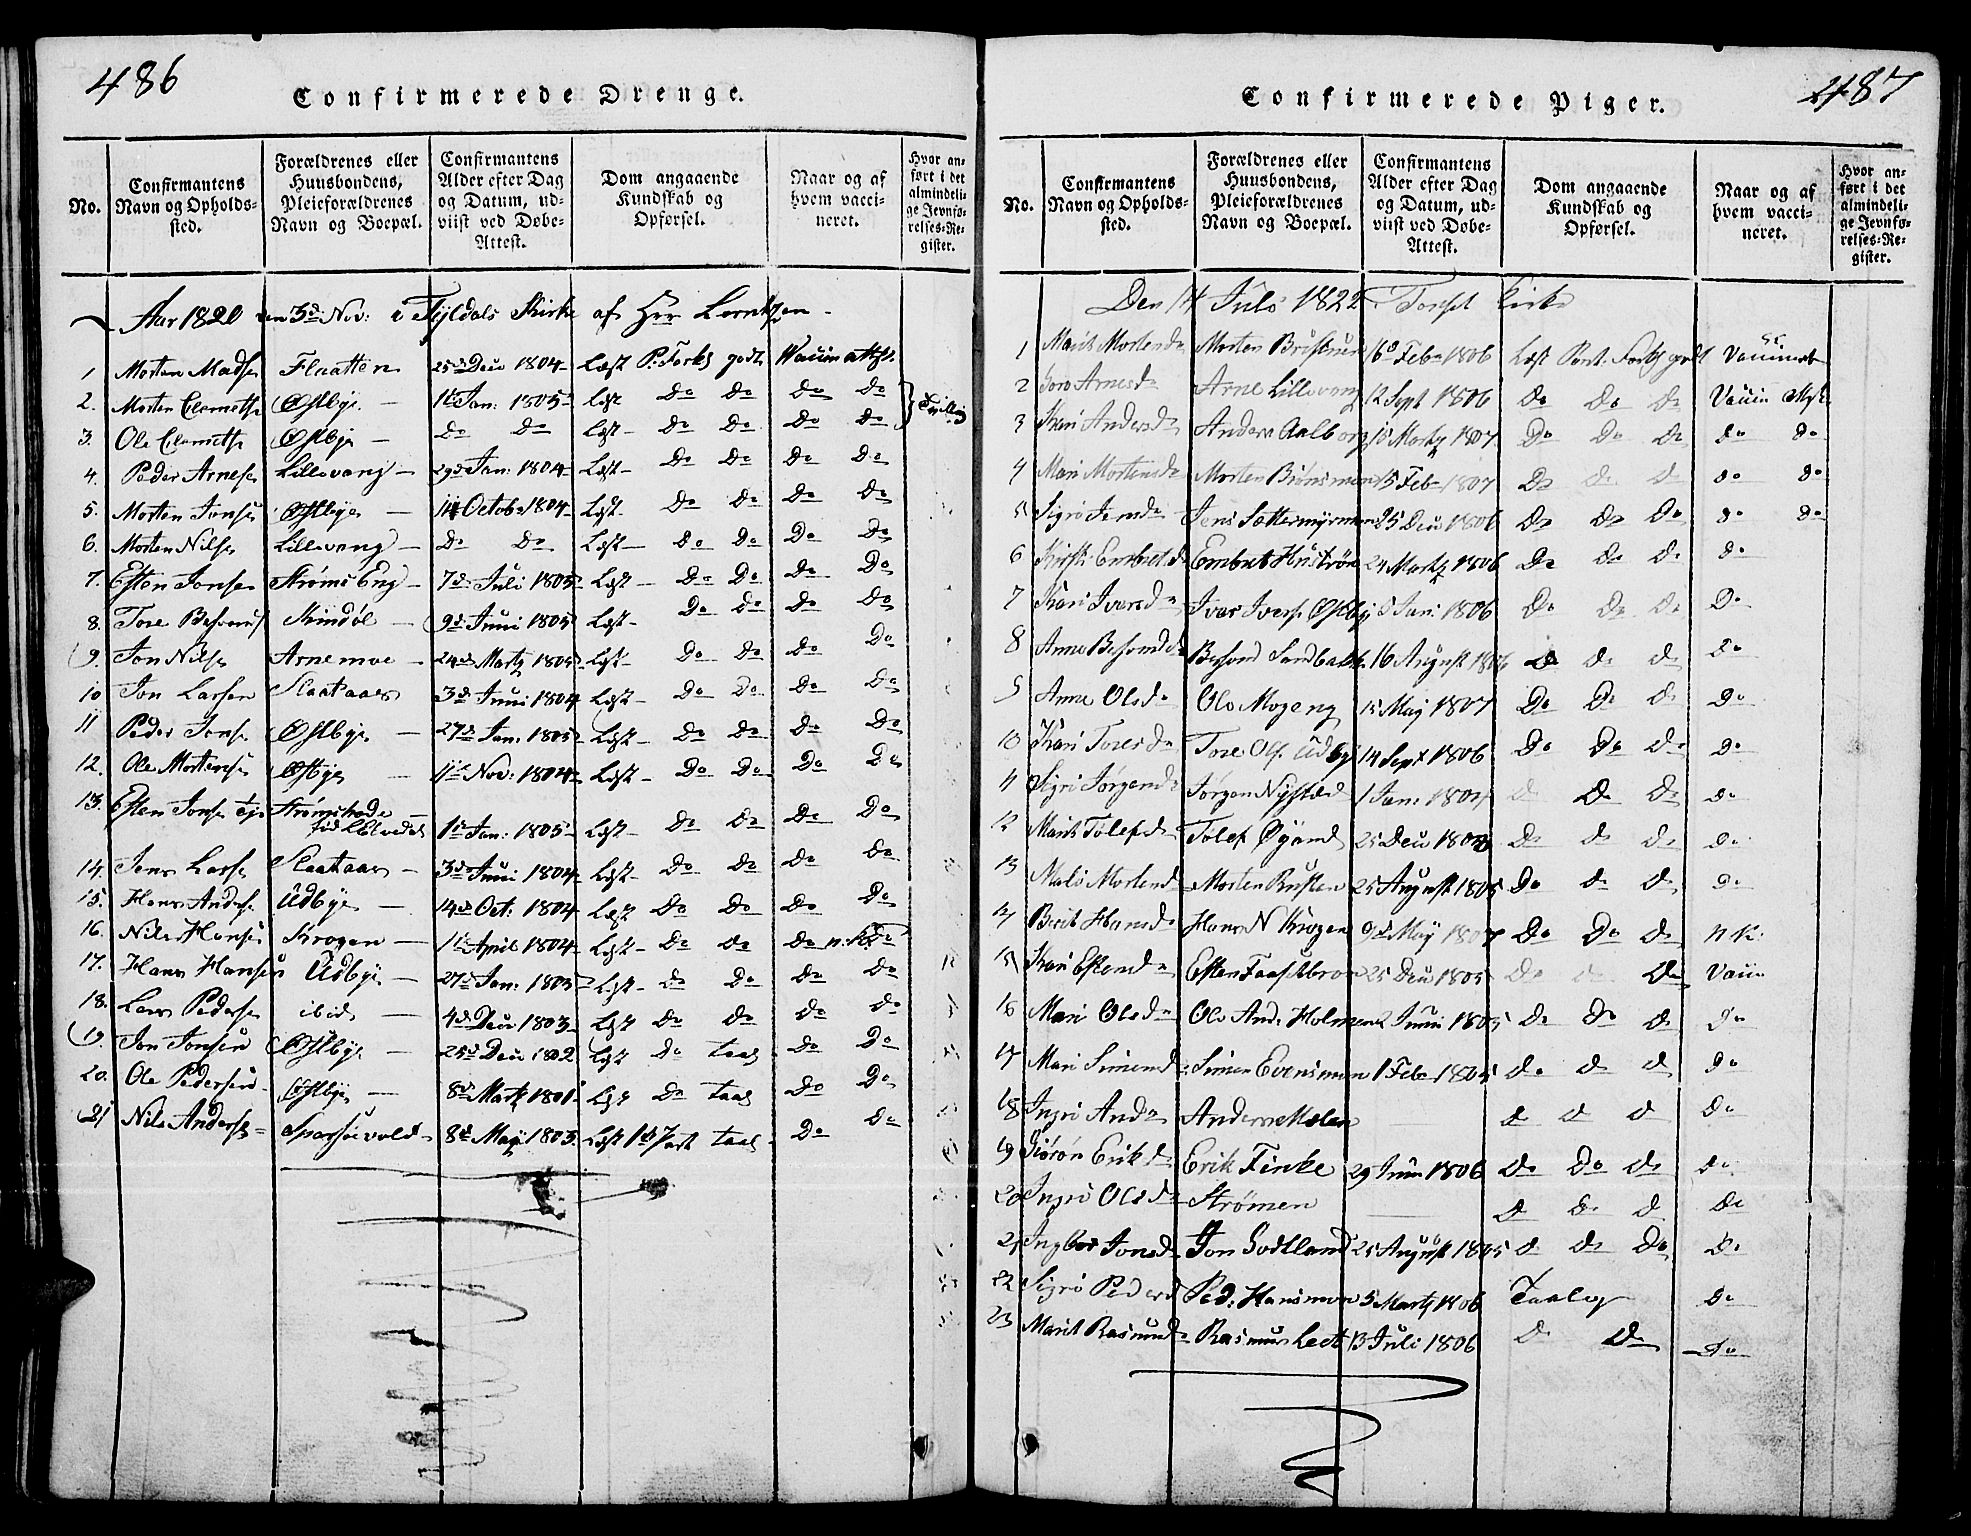 486
Confirmerede Drenge.
No.
Confirmantens Navn og Opholds-sted.
Forældrenes eller Huusbondens, Pleieforældrenes Navn og Boepæl.
Confirmantens Alder efter Dag og Datum, ud-viist ved Døbe-Attest.
Dom angaaende Kundskab og Opførsel.
Naar og af hvem vacci-neret.
Hvor an-ført i det almindeli-ge Jevnfø-relses-Re-gister.
Aar 1820 den 3d Nov: i Tyldals Kirke af Hrr Lorntzen
1 Morten Madse Flaatten 25d Decr 1804 Læst P. Forkl godt Vaccin attest.
2. Morten Clemetse Østbye 1te Jan: 1805 Læst do do do do Tvilling
3. Ole Clemetse Østbye do do Læst do do do do
4. Peder Arnese Lillevang 29d Jan: 1804 Læst do do do do
5. Morten Jonse Østbye 14 Octob 1804 Læst do do do do
6. Morten Nilse Lillevang do do Læst do do do do
7. Esten Jonsen Strøms Eng 7d Juli 1805 Læst do do do do
8. Tore Besend 9d Juni 1805 Læst do do do do
9. Jon Nilse Arnemoe 24d Martz 1805 Læst do do do do
10 Jon Larsen Slaataaes 3d Juni 1804 Læst do do do do
11 Peder Jonse Østbye 27d Jan: 1805 Læst do do do do
12. Ole Mortense Østbye 11te Nov: 1804 Læst do do do do
13. Esten Jonse 1te Jan: 1805 Læst do do do do
14. Jens Larse Slaataaes 3d Juni 1804 Læst do do do do
15. Hans Anderse Udbye 14d Oct: 1804 Læst do do do do
16. Nils Hanse Krogen 1te April 1804 Læst do do do n. K. do
17. Hans Hansen Udbye 27d Jan: 1805 Læst do do do do
18. Lars Pederse ibid 4d Decr 1803 Læst do do do do
19. Jon Jonsen Østbye 25d Decr 1802 Læst do taal do do
20. Ole Pedersen Østbye 8d Martz 1801 Læst do taal do do
21 Nils Anderse 8d Maij 1803 Læst 1d Part taal do do
487
Confirmerede Piger.
No.
Confirmantens Navn og Opholds-sted.
Forældrenes eller Huusbondens, Pleieforældrenes Navn og Boepæl.
Confirmantens Alder efter Dag og Datum, ud-viist ved Døbe-Attest.
Dom angaaende Kundskab og Opførsel.
Naar og af hvem vacci-neret.
Hvor an-ført i det almindeli-ge Jevnfø-relses-Re-gister.
Den 14 Juli 1822 Tønset Kirke
1 Marit Mortensd Morten 16d Feb 1806 Læst Pont. Forkl godt
2 Goro Arnesd Arne Lillevang 12 Sept 1806 do do do Vaccin
3 Kari Andersd Anders Aalborg 10 Martz 1807 do do do do do
4 Mari Mortensd Morten Brønsmoen 15 Feb 1807 do do do do do
5 Sigri Jensd Jens Sættermyrmoen 25 Decr 1806 do do do do do
6 Kirsti Embretsd Embret Hustrøen 24 Martz 1806 do do do do
7 Kari Iversd Iver Ivers. Østby 5 Jan: 1806 do do do do
8 Anne Besendsd Besend Sandbak 16 August 1806 do do do do
9 Anne Olsd Ole Mogeng 15 Maij 1807 do do do do
10 Kari Toresd Tore Ols. Udby 14 Sept 1806 do do do do
11 Sigri Jørgensd Jørgen Nystæd 1 Jan: 180 do do do do
12 Marit Tolefsd Tolef Øyand 25 Decr 180 do do do do
13 Malo Mortensd Morten Rusten 25 August 1805 do do do do
14 Berit Hansd Hans N Krogen 9d Maij 1807 do do do n K.
15 Kari Estensd Esten Faasetbroe 25 Decr 1805 do do do Vacci
16 Mari Olsd Ole And. Holmen 2 Juni 1805 do do do do
17 Mari Simensd Simen Evensmoen 1 Feb 1805 do do do do
18 Ingri Andd Anders Moen do do do do
19 Gørøn Eriksd Erik Finke 29 Juni 1806 do do do do
20 Ingri Olsd Strømen do do do do
21 Ingbor Jonsd Jon Godtland 25 August 1805 do do do do
22 Sigri Pedersd Ped. Hansmoen 5 Martz 1806 Taalig do
23 Marit Rasmusd Rasmus Leet 13 Juli 1806 do do do